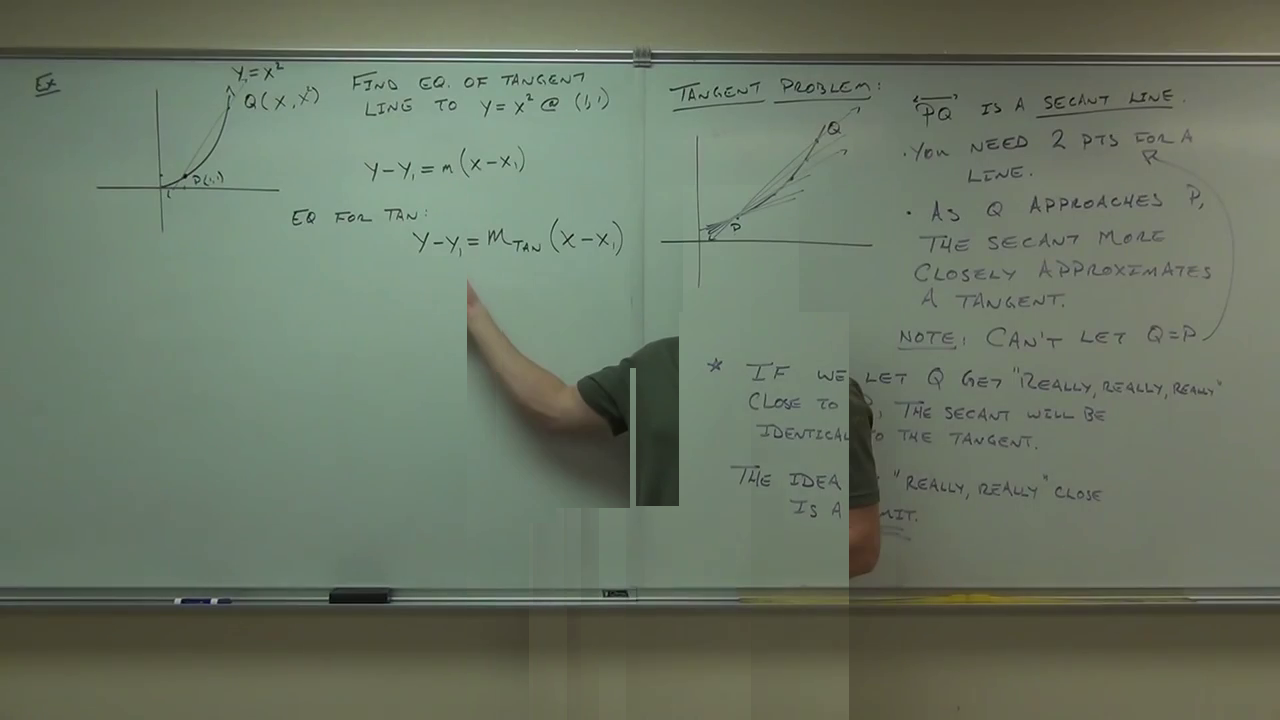 Ex
y=x²
Q(x, x²)
P(1,1)
FIND EQ. OF TANGENT
LINE TO y=x² @ (1,1)
y-y₁=m(x-x₁)
EQ FOR TAN:
y-y₁=m_TAN(x-x₁)
TANGENT PROBLEM:
Q
P
"PQ" IS A SECANT LINE.
·YOU NEED 2 PTS FOR A
LINE.
· AS Q APPROACHES P,
THE SECANT MORE
CLOSELY APPROXIMATES
A TANGENT.
NOTE: CAN'T LET Q=P
* IF WE LET Q GET "REALLY, REALLY, REALLY"
CLOSE TO , THE SECANT WILL BE
IDENTICAL TO THE TANGENT.
THE IDEA "REALLY, REALLY" CLOSE
IS A MIT.